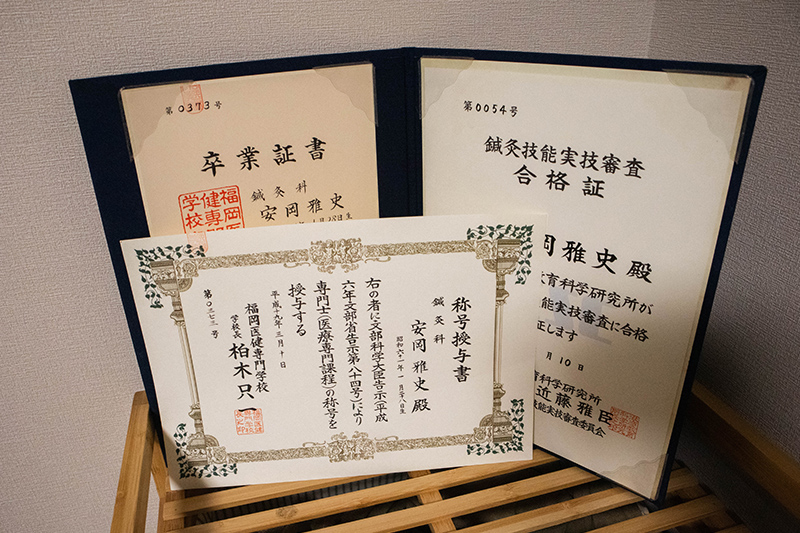 第0373号
卒業証書
鍼灸科
安岡雅史
福岡医
健専門
学校
第0054号
鍼灸技能実技審査
合格証
岡雅史殿
育科学研究所が
能実技審査に合格
正します
月10日
育科学研究所
近藤雅臣
技能実技審査委員会
称号授与書
鍼灸科
安岡雅史殿
昭和六十一年一月 八日生
右の者に文部科学大臣告示(平成
六年文部省告示第八十四号)により
専門士(医療専門課程)の称号を
授与する
平成十九年三月十日
福岡医健専門学校
学校長 柏木只